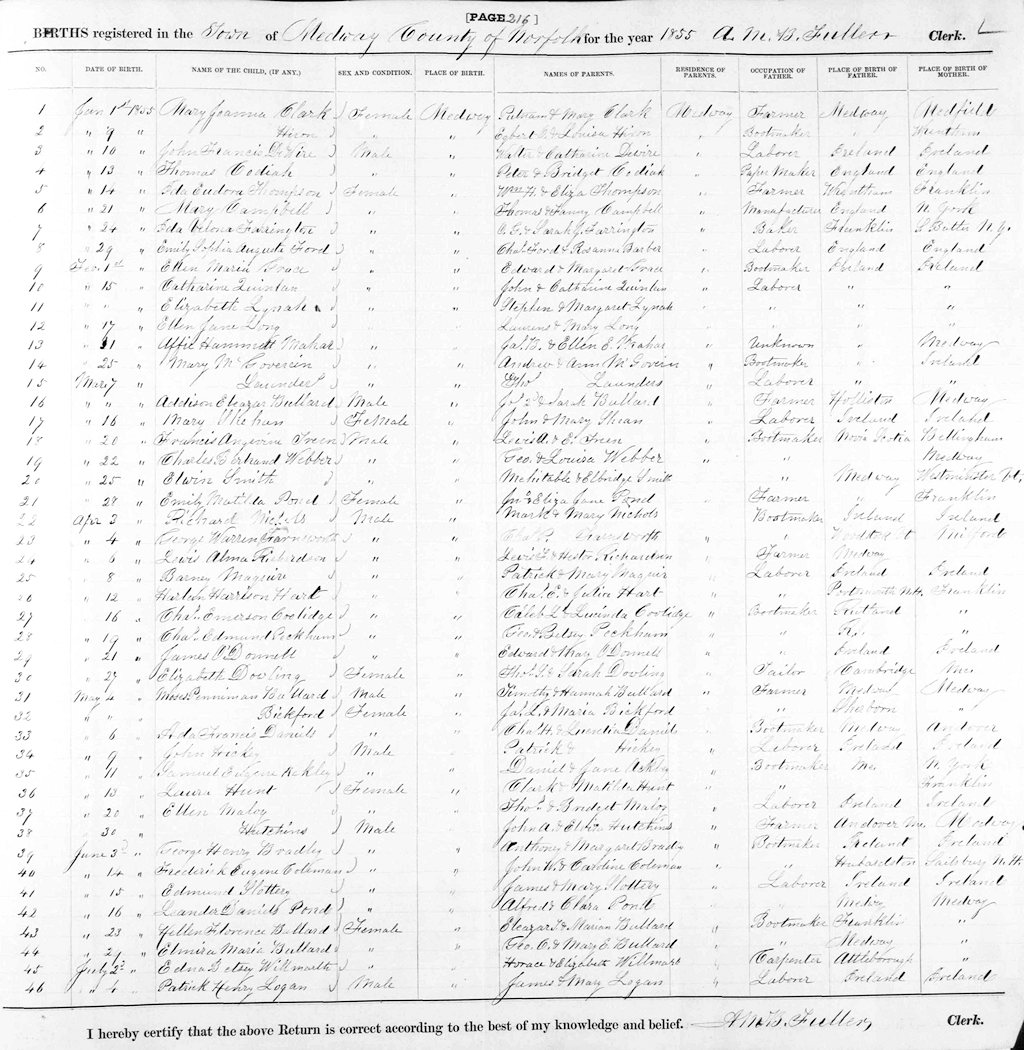 [PAGE 216]
BIRTHS registered in the Town of Medway County of Norfolk for the year 1855 A. M. B. Fuller Clerk.
NO. DATE OF BIRTH. NAME OF THE CHILD, (IF ANY.) SEX AND CONDITION. PLACE OF BIRTH. NAMES OF PARENTS. RESIDENCE OF PARENTS. OCCUPATION OF FATHER. PLACE OF BIRTH OF FATHER. PLACE OF BIRTH OF MOTHER.
1 Jan 1st 1855 Mary Joanna Clark Female Medway Putnam & Mary Clark Medway Farmer Medway Medfield
2 " 9 " Hixon " " Egbert & Louisa Hixon " Bootmaker " Wrentham
3 " 10 " John Francis DeWire Male " Walter & Catharine Dewire " Laborer Ireland Ireland
4 " 13 " Thomas Codiah " " Peter & Bridget Codiah " Paper Maker England England
5 " 14 " Ida Eudora Thompson Female " Wm H. & Eliza Thompson " Farmer Wrentham Franklin
6 " 21 " Mary Campbell " " Thomas & Fanny Campbell " Manufacturer England N. York
7 " 24 " Ida Velona Farrington " " O. G. & Sarah J. Farrington " Baker Franklin
8 " 29 " Emily Sophia Augusta Ford " " Chas Ford & Rosanna Barber " Laborer England England
9 Feb. 1st " Ellen Maria Grace " " Edward & Margaret Grace " Bootmaker Ireland Ireland
10 " 15 " Catharine Quinlan " " John & Catharine Quinlan " Laborer " "
11 " " " Elizabeth Lynah " " Stephen & Margaret Lynah " " " "
12 " 17 " Ellen Jane Long " " Laurens & Mary Long " " " "
13 " 21 " Affie Hammett Mahar " " Jas B. & Ellen E. Mahar " Unknown " Medway
14 " 25 " Mary McGoverin " " Andrew & Ann McGoverin " Bootmaker " Ireland
15 Mar 7 " Launders " " Thos Launders " Laborer " "
16 " " " Addison Eleazar Bullard Male " & Sarah Bullard " Farmer Holliston Medway
17 " 16 " Mary Shehan FeMale " John & Mary Shean " Laborer Ireland Ireland
18 " 20 " Francis Angevine Male " Lewis A. & E. " Bootmaker Nova Scotia Bellingham
19 " 22 " Charles Bertrand Webber " " Geo. & Louisa Webber " " " Medway
20 " 25 " Elwin Smith " " Mehitable & Elbridge Smith " " Medway Westminister Vt.
21 " 28 " Emily Matilda Pond Female " & Eliza Jane Pond " Farmer " Franklin
22 Apr 3 " Richard Nichols Male " Mark & Mary Nichols " Bootmaker Ireland Ireland
23 " 4 " George Warren Farnsworth " " Chas Farnsworth " " Milford
24 " 6 " Lewis Alma Richardson " " Lewis & Richardson " Farmer Medway
25 " 8 " Barney Maguire " " Patrick & Mary Maguir " Laborer Ireland Ireland
26 " 12 " Harlan Harrison Hart " " Chas E. & Julia Hart " " Portsmouth N.H. Franklin
27 " 16 " Chas Emerson Coolidge " " Caleb L. & Lucinda Coolidge " Bootmaker "
28 " 19 " Chas Edmund Peckham " " Geo. & Betsey Peckham " " R.I. "
29 " 21 " James O'Donnell " " Edward & Mary O'Donnell " " Ireland Ireland
30 " 27 " Elizabeth Dowling Female " Thos & Sarah Dowling " Tailor Cambridge Me.
31 May 4 " Moses Penniman Bullard Male " Timothy & Hannah Bullard " Farmer Medway Medway
32 " " " Bickford Female " Jas L. & Maria Bickford " " Sherborn "
33 " 6 " Ada Francis Daniels " " Chas H. & Lucretia Daniels " Bootmaker Medway Andover
34 " 9 " John Hickey Male " Patrick & Hickey " Laborer Ireland Ireland
35 " 11 " Samuel Eugene Ackley " " Daniel & Jane Ackley " Bootmaker Me. N. York
36 " 13 " Laura Hunt Female " Clark & Matilda Hunt " " " Franklin
37 " 20 " Ellen Maloy " " Thos & Bridget Maloy " Laborer Ireland Ireland
38 " 30 " Hutchins Male " John A. & Eliza Hutchins " Farmer Andover Me. Medway
39 June 3d " George Henry Bradly " " Anthony & Margaret Bradly " Bootmaker Ireland Ireland
40 " 14 " Frederick Eugene Coleman " " John W. & Caroline Coleman " " Hubardston Salisbury N.H.
41 " 15 " Edmund Slottery " " James & Mary Slottery " Laborer Ireland Ireland
42 " 16 " Leander Daniels Pond " " Alfred & Clara Pond " " Medway Medway
43 " 23 " Hellen Florence Bullard Female " Eleazar & Marian Bullard " Bootmaker Franklin "
44 " 29 " Elmira Maria Bullard " " Geo. C. & Mary E. Bullard " " Medway "
45 July 2d " Edna Betsey Willmarth " " Horace & Elizabeth Willmarth " Carpenter Attleborough "
46 " 4 " Patrick Henry Logan Male " James & Mary Logan " Laborer Ireland Ireland
I hereby certify that the above Return is correct according to the best of my knowledge and belief. A. M. B. Fuller, Clerk.